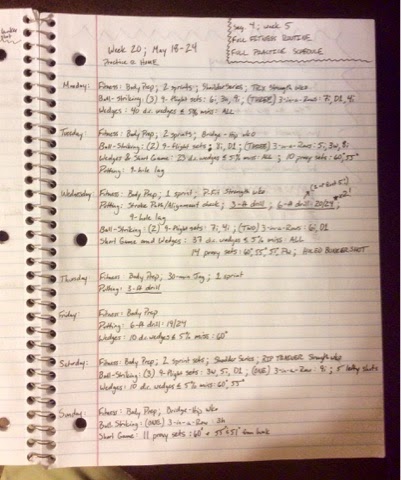 Seg. 4; week 5
FULL FITNESS ROUTINE
FULL PRACTICE SCHEDULE
Week 20; May 18-24
Practice @ HOME
Monday: Fitness: Body Prep, 2 sprints, Shoulder Series, TRX Strength wko
Ball-Striking: (3) 9-Flight sets: 6i, 3w, 9i, (THREE) 3-in-a-Rows: 7i, D1, 9i
Wedges: 40 d.c. wedges ≤ 5% miss: ALL
Tuesday: Fitness: Body Prep, 2 sprints, Bridge-Hip wko
Ball-Striking: (2) 9-Flight sets: 8i, D1; (THREE) 3-in-a-Rows: 5i, 3w, 8i
Wedges & Short Game: 23 d.c. wedges ≤ 5% miss: ALL; 10 proxy sets: 60°, 55°
Putting: 9-hole lag
Wednesday: Fitness: Body Prep, 1 sprint, Strength wko
Putting: Stroke Path/Alignment check, 3-ft drill, 6-ft drill: 20/24,
9-hole lag
Ball-Striking: (2) 9-Flight sets: 7i, 4i, (TWO) 3-in-a-Rows: 6i, D1
Short Game and Wedges: 37 d.c. wedges ≤ 5% miss: ALL
14 proxy sets: 60°, 55°, 51°, Pw, HOLED BUNKER SHOT
Thursday: Fitness: Body Prep, 30-min Jog, 1 sprint
Putting: 3-ft drill
Friday: Fitness: Body Prep
Putting: 6-ft drill: 19/24
Wedges: 10 d.c. wedges ≤ 5% miss: 60°
Saturday: Fitness: Body Prep, 2 sprint sets, Shoulder Series, RIP TRAINER Strength wko
Ball-Striking: (3) 9-Flight sets: 3w, 5i, D1, (ONE) 3-in-a-Row: 9i, 5 lefty shots
Wedges: 10 d.c. wedges ≤ 5% miss: 60°, 55°
Sunday: Fitness: Body Prep, Bridge-Hip wko
Ball Striking: (ONE) 3-in-a-Row: 3h
Short Game: 11 proxy sets: 60° + 55° + 51° from bunk